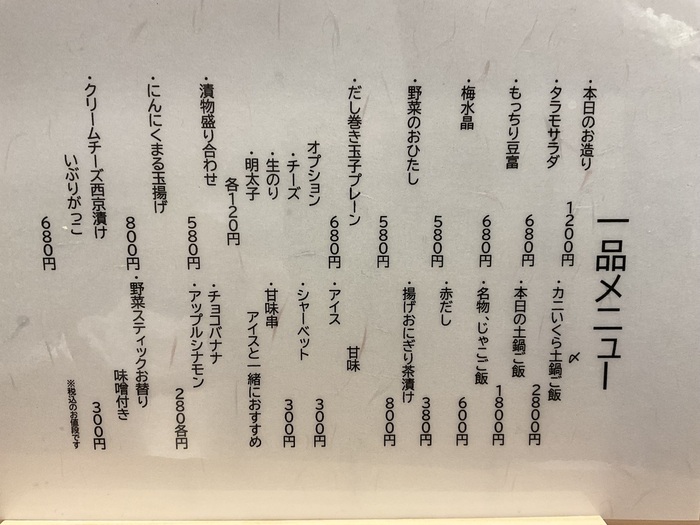 一品メニュー
・本日のお造り 1200円
・タラモサラダ 680円
・もっちり豆富 680円
・梅水晶 580円
・野菜のおひたし 580円
・だし巻き玉子プレーン 680円
オプション
・チーズ
・生のり
・明太子
各120円
・漬物盛り合わせ 580円
・にんにくまる玉揚げ 800円
・クリームチーズ西京漬け
いぶりがっこ 680円
〆
・カニいくら土鍋ご飯 2800円
・本日の土鍋ご飯 1800円
・名物、じゃこご飯 600円
・赤だし 380円
・揚げおにぎり茶漬け 800円
甘味
・アイス 300円
・シャーベット 300円
・甘味串
アイスと一緒におすすめ
・チョコバナナ
・アップルシナモン 280各円
・野菜スティックお替り
味噌付き 300円
※税込のお値段です